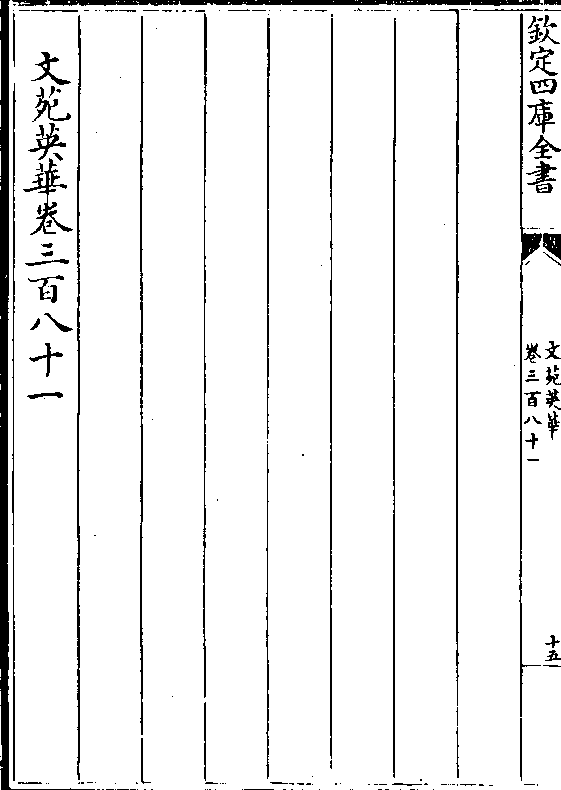 欽定四庫全書
文苑英華
卷三百八十一
十五
文苑英華卷三百八十一